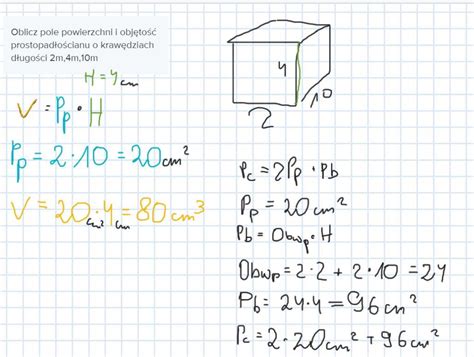 Oblicz pole powierzchni i objętość
prostopadłościanu o krawędziach
długości 2m,4m,10m
H = 4 cm
V = Pp · H
Pp = 2 · 10 = 20 cm²
V = 20 cm² · 4 cm = 80 cm³
4
10
2
Pc = 2Pp · Pb
Pp = 20 cm²
Pb = Obwp · H
Obwp = 2 · 2 + 2 · 10 = 24
Pb = 24 · 4 = 96 cm²
Pc = 2 · 20 cm² + 96 cm²